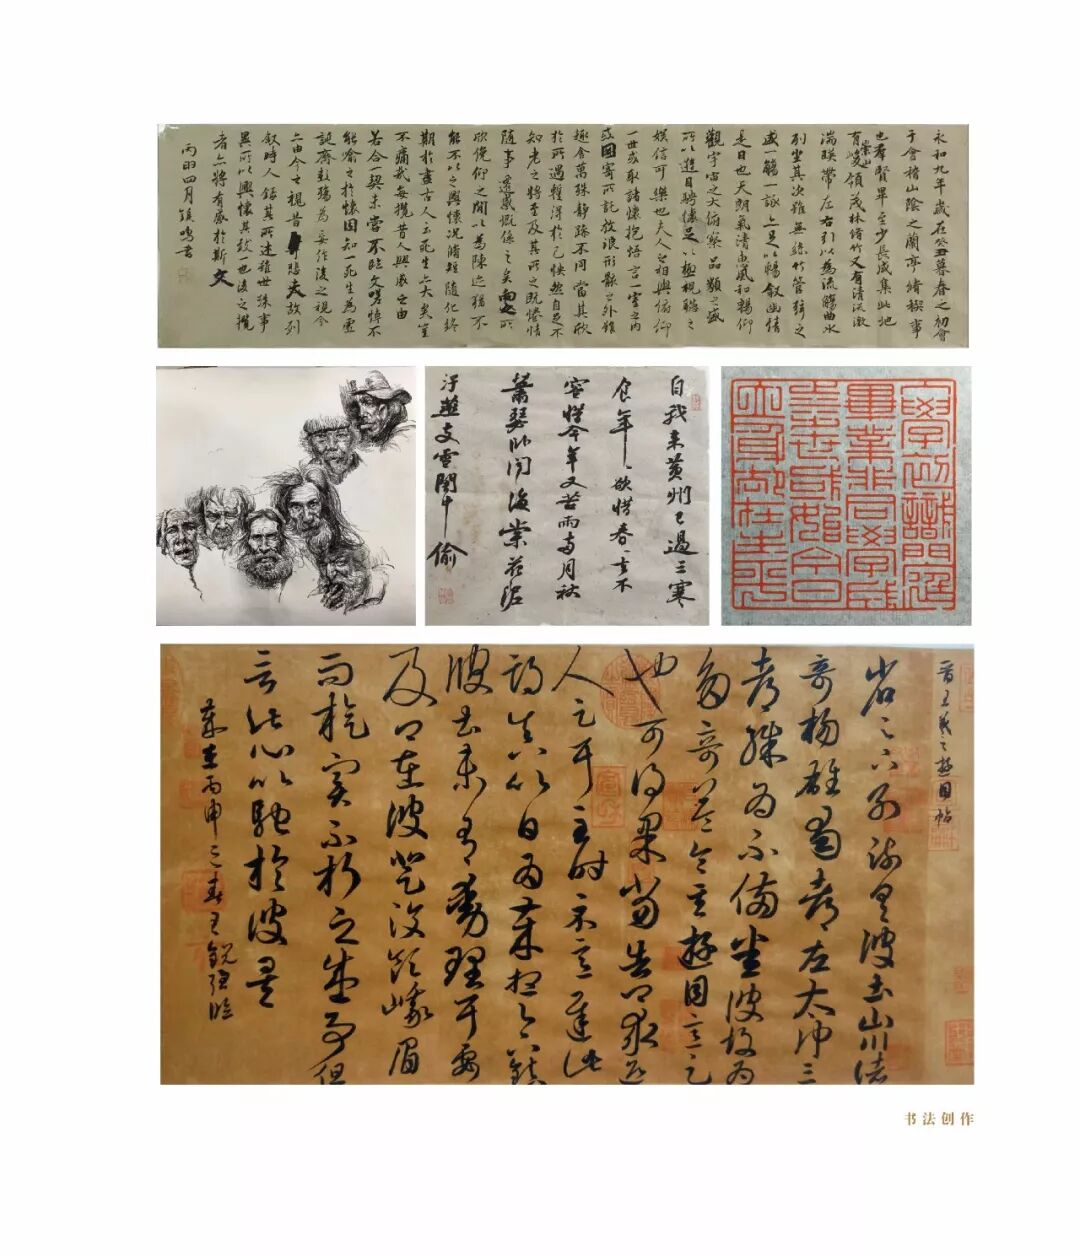 永和九年歲在癸丑暮春之初會
于會稽山陰之蘭亭脩禊事
也羣賢畢至少長咸集此地
有崇山峻領茂林脩竹又有清流激
湍暎帶左右引以為流觴曲水
列坐其次雖無絲竹管弦之
盛一觴一詠亦足以暢敘幽情
是日也天朗氣清惠風和暢仰
觀宇宙之大俯察品類之盛
所以遊目騁懷足以極視聽之
娛信可樂也夫人之相與俯仰
一世或取諸懷抱悟言一室之內
或因寄所託放浪形骸之外雖
趣舍萬殊靜躁不同當其欣
於所遇暫得於己快然自足不
知老之將至及其所之既惓情
隨事遷感慨係之矣向之所
欣俛仰之閒以為陳迹猶不
能不以之興懷況脩短隨化終
期於盡古人云死生亦大矣豈
不痛哉每攬昔人興感之由
若合一契未嘗不臨文嗟悼不
能喻之於懷固知一死生為虛
誕齊彭殤為妄作後之視今
亦由今之視昔悲夫故列
敘時人錄其所述雖世殊事
異所以興懷其致一也後之攬
者亦將有感於斯文
四月 鳴書
自我來黃州已過三寒
食年〻欲惜春〻去不
容惜今年又苦雨兩月秋
蕭瑟臥聞海棠花泥
汙燕支雪闇中偷
學初識門逕
畢業非同學成
晉王羲之遊目帖
省足下別疏具彼土山川諸
奇揚雄蜀都左太沖三
都殊為不備悉彼故為
多奇益令其遊目意足
也可得果當告卿求迎
人足耳至時示意遲此
期真以日為歲想足下鎮
彼土未有動理耳要
及卿在彼登汶領峨眉
而旋實不朽之盛事但
言此心以馳於彼矣
歲在丙申之春王銳強臨
书法创作